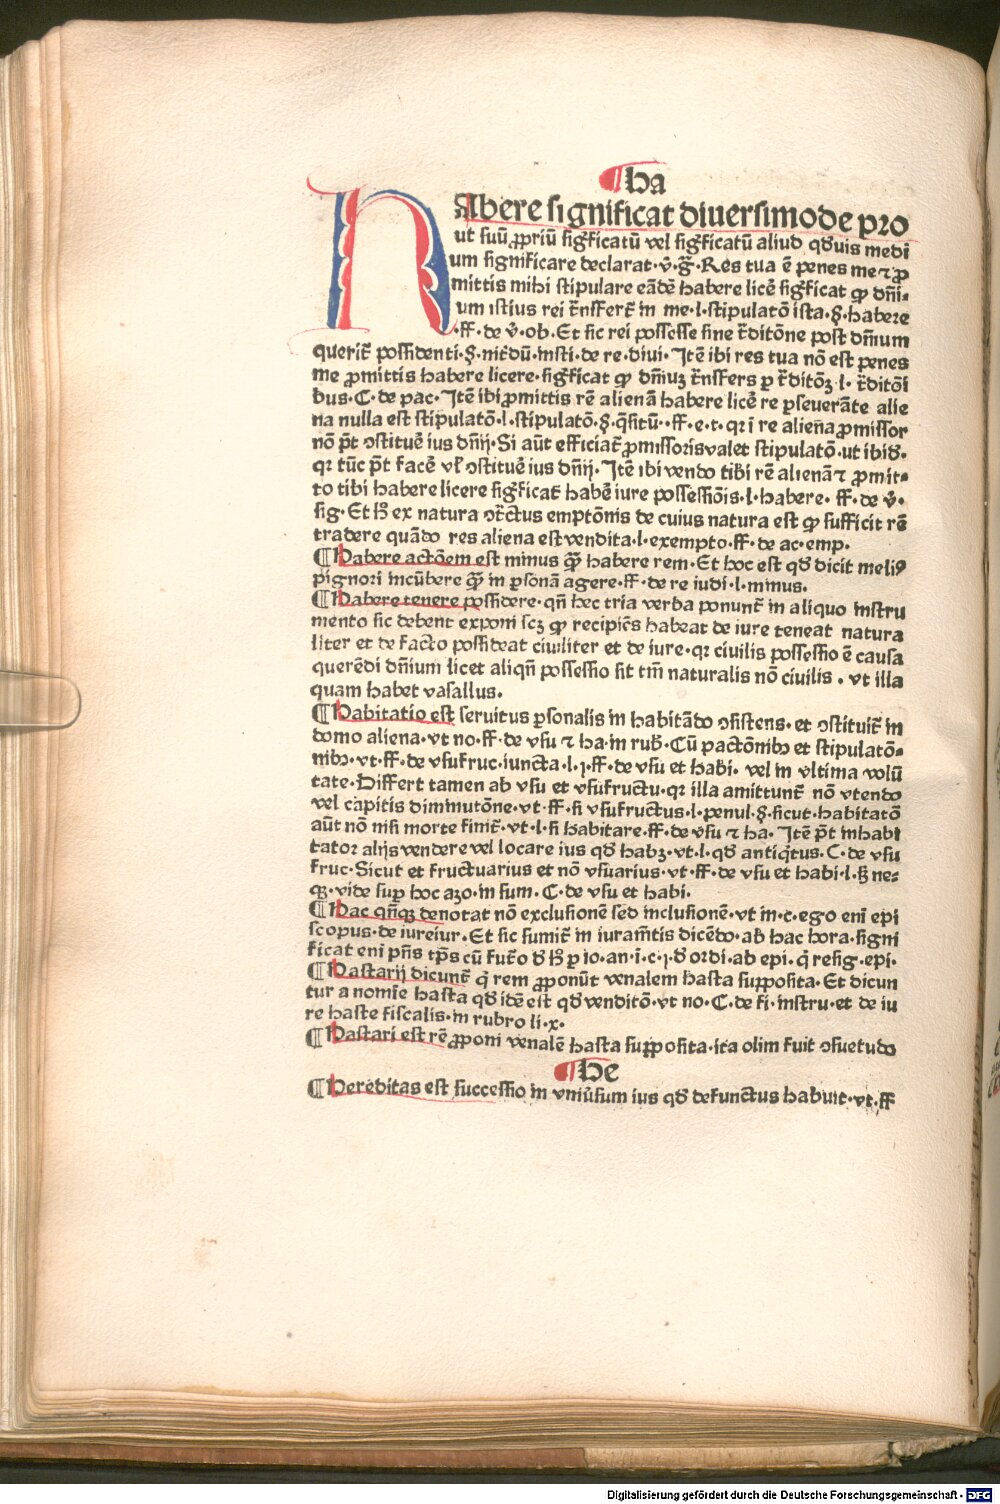 ¶ Ha
HAbere significat diuersimode pro
ut suū ꝓpriū sigᷓficatū vel sigᷓficatū aliud qd̄uis medi
um significare declarat·v̄·gᷓ·Res tua ē penes me ⁊ ꝓ
mittis mihi stipulare eādē habere licē sigᷓficat ꝙ dn̄i⸗
um istius rei t̄nsfert̄ in me·l·stipulatō ista·§·habere
·ff·de v̄·ob·Et sic rei possesse sine t̄ditōne post dm̄ium
querit̄ possidenti·§·nit̄dū·insti·de re·diui·Itē ibi res tua nō est penes
me ꝓmittis habere licere·sigᷓficat ꝙ dn̄iuꝫ t̄nsfers p t̄ditōꝫ·l·t̄ditōi
bus·C·de pac·Itē ibi ꝓmittis rē alienā habere licē re pseuerāte alie
na nulla est stipulatō·l·stipulatō·§·q̄sitū··ff·e·t·qr ī re aliena ꝓmissor
nō pt̄ ↄstituē ius dn̄ij·Si aūt efficiat̄ ꝓmissoris valet stipulatō·ut ibid̄·
qr tūc pt̄ facē vl̄ ↄstituē ius dn̄ij·Itē ibi vendo tibi rē alienā ⁊ ꝓmit⸗
to tibi habere licere sigᷓficat habē iure possessiōis·l·habere·ff·de v̄·
sig·Et h̄ ex natura ↄt̄ctus emptōnis de cuius natura est ꝙ sufficit rē
tradere quādo res aliena est vendita·l·exempto·ff·de ac·emp·
¶Habere actōem est minus qᷓꝫ habere rem·Et hoc est qd̄ dicit meliꝰ
pignori incūbere qᷓꝫ in psonā agere·ff·de re iudi·l·minus·
¶Habere tenere possidere·qn̄ hec tria verba ponunt̄ in aliquo instru
mento sic debent exponi scꝫ ꝙ recipiēs habeat de iure teneat natura
liter et de facto possideat ciuiliter et de iure·qr ciuilis possessio ē causa
querēdi dn̄ium licet aliqn̄ possessio sit tm̄ naturalis nō ciuilis·vt illa
quam habet vasallus·
¶Habitatio est seruitus psonalis in habitādo ↄsistens·et ↄstituit̄ in
domo aliena·vt no·ff·de vsu ⁊ ha·in rub̄·Cū pactōnibꝫ et stipulatō⸗
nibꝫ·vt·ff·de vsufruc·iuncta·l·j·ff·de vsu et habi·vel in vltima volū
tate·Differt tamen ab vsu et vsufructu·qr illa amittunt̄ nō vtendo
vel capitis diminutōne·vt·ff·si vsufructus·l·penul·§·sicut·habitatō
aūt nō nisi morte finit̄·vt·l·si habitare·ff·de vsu ⁊ ha·Itē pt̄ inhabi
tator alijs vendere vel locare ius qd̄ habꝫ·vt·l·qd̄ antiq̄tus·C·de vsu
fruc·Sicut et fructuarius et nō vsuarius·vt·ff·de vsu et habi·l·sꝫ ne⸗
qꝫ·vide sup hoc azo·in sum·C·de vsu et habi·
¶Hac qn̄qꝫ denotat nō exclusionē sed inclusionē·vt in·c·ego eni epi
scopus·de iureiur·Et sic sumit̄ in iuramt̄is dicēdo·ab hac hora·signi
ficat eni pn̄s tp̄s cū fut̄o d̄ h̄ p io·an·i·c·j·d̄ ordi·ab epi·q̄ resig·epi·
¶Hastarij dicunt̄ q̄ rem ꝓponūt venalem hasta supposita·Et dicun
tur a nomīe hasta qd̄ idē est qd̄ venditō·vt no·C·de fi·instru·et de iu
re haste fiscalis·in rubro li·x·
¶Hastari est rē ꝓponi venalē hasta supposita·ita olim fuit ↄsuetudo
¶ He
¶Hereditas est successio in vniūsum ius qd̄ defunctus habuit·vt·ff
Digitalisierung gefördert durch die Deutsche Forschungsgemeinschaft - DFG